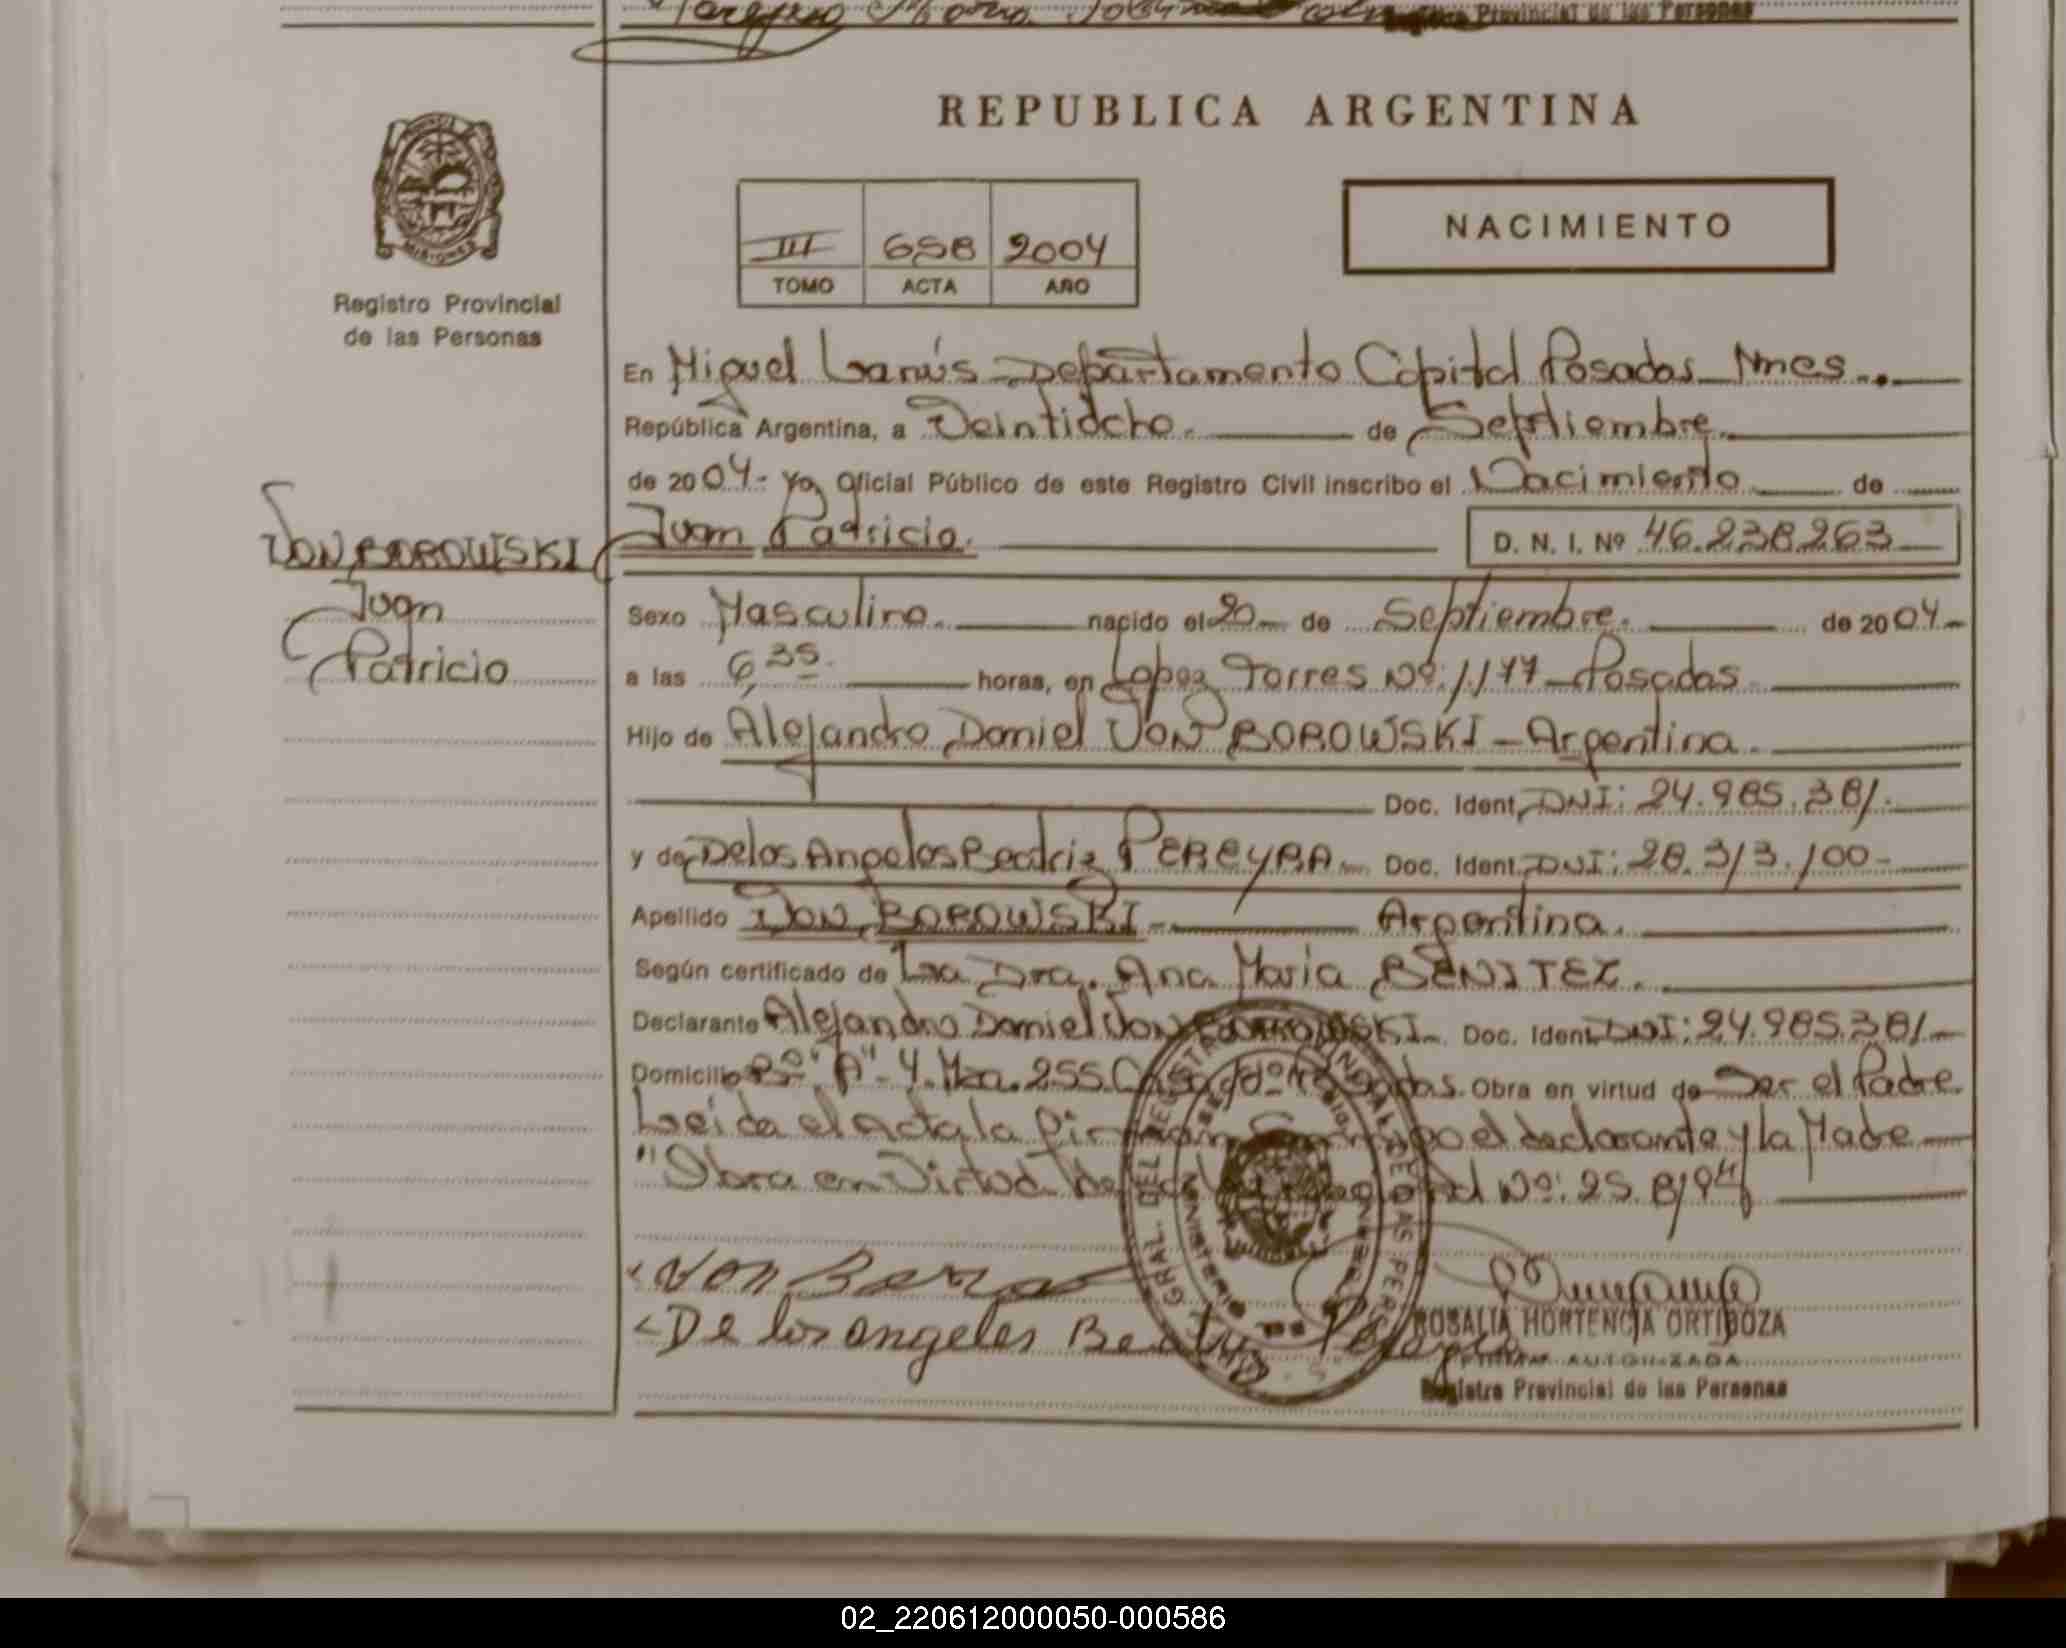 Registro Provincial de las Personas
REPUBLICA ARGENTINA
MISIONES
Registro Provincial
de las Personas
III 658 2004
TOMO ACTA AÑO
NACIMIENTO
En Miguel Lanús Departamento Capital Posadas Mnes.
República Argentina, a Veintiocho. de Septiembre.
de 2004.- Yo, Oficial Público de este Registro Civil inscribo el Nacimiento de
VON BOROWSKI
Juan
Patricio
Juan Patricio.
D. N. I. Nº 46.238.263
Sexo Masculino. nacido el 20 de Septiembre. de 2004
a las 6,35 horas, en Lopez Torres Nº: 1177 Posadas
Hijo de Alejandro Daniel VON BOROWSKI - Argentina.
Doc. Ident. DNI: 24.985.381.
y de De los Angeles Beatriz PEREYRA. Doc. Ident. DNI: 28.313.100-
Apellido VON BOROWSKI Argentina.
Según certificado de La Dra. Ana Maria BENITEZ.
Declarante Alejandro Daniel VON BOROWSKI. Doc. Ident. DNI: 24.985.381
Domicilio Bº "A"-4. Mza. 255. Obra en virtud de Ser el Padre
Leida el Acta la el declarante y la Madre
"Obra en Virtud Nº: 25.819"
Von Boro
De los angeles Beatriz Pereyra
GRAL. DEL REGISTRO PROVINCIAL DE LAS PERS
ROSALIA HORTENCIA ORTIGOZA
FIRMA AUTORIZADA
Registro Provincial de las Personas
02_220612000050-000586